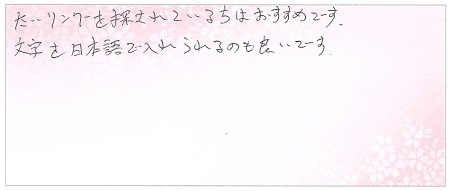 太いリングを探されている方はおすすめです。
文字を日本語で入れられるのも良いです。